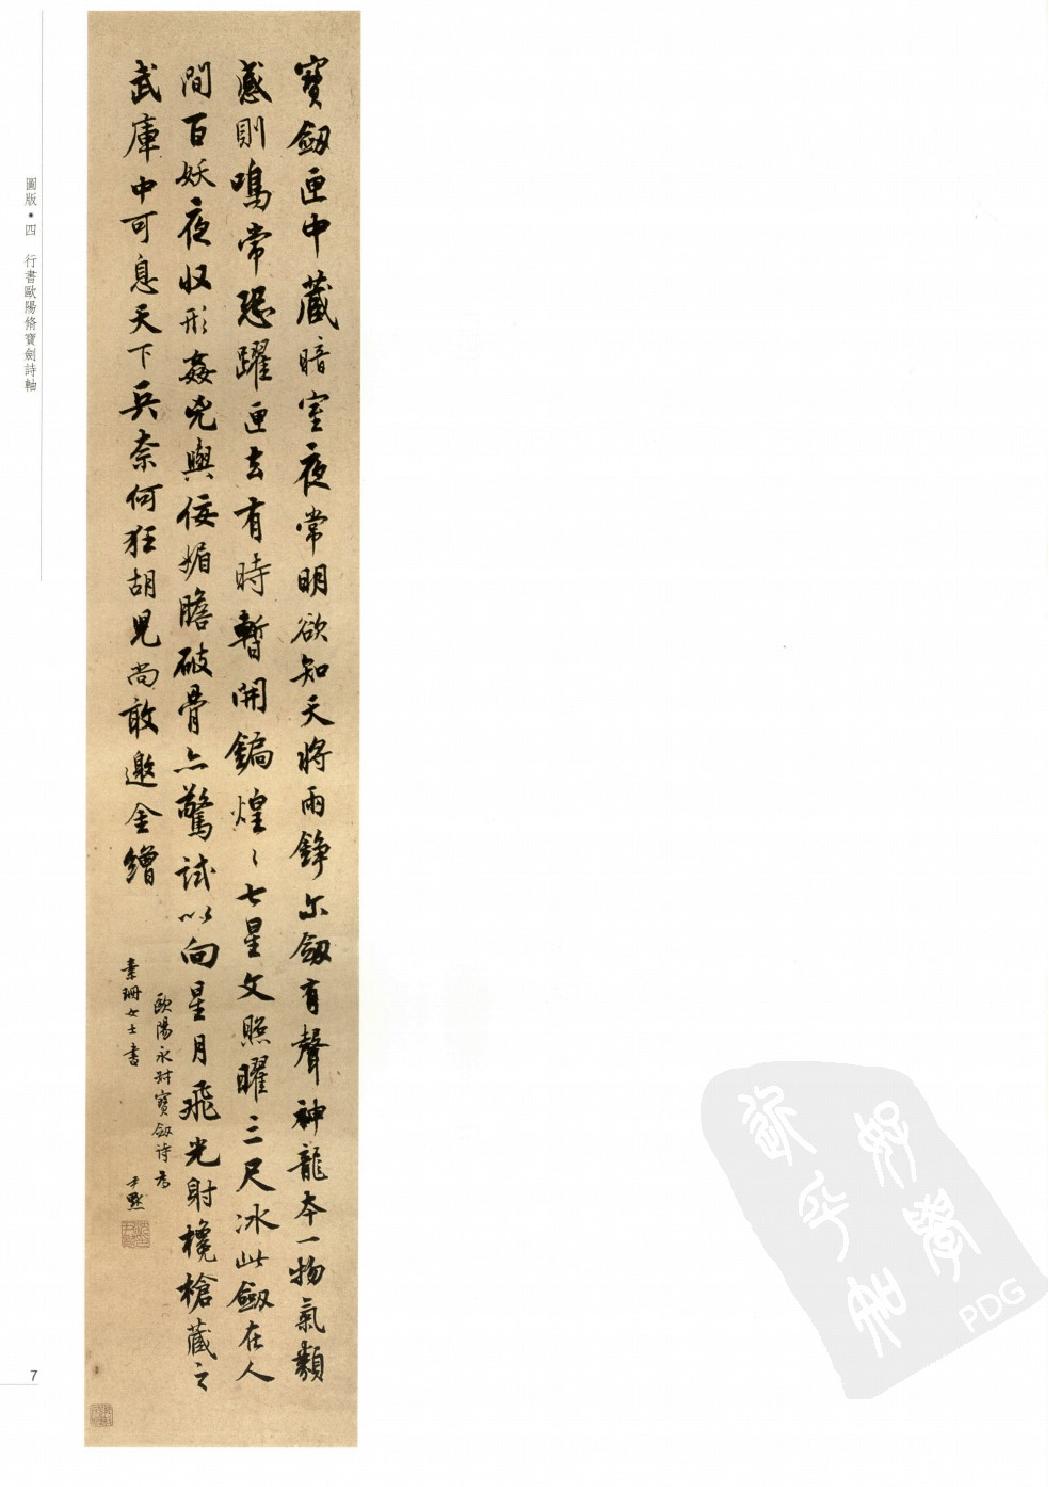 寶劔匣中藏暗室夜常明欲知天將雨錚尔劔有聲神龍本一物氣類
感則鳴常恐躍匣去有時暫開鐍煌〻七星文照曜三尺冰此劔在人
間百妖夜収形姦兇與佞媚膽破骨亦驚試以向星月飛光射欃槍藏之
武庫中可息天下兵奈何狂胡兒尚敢邀金繒
歐陽永叔寶劔詩為
素珊女士書
尹默
圖版·四 行書歐陽脩寶劍詩軸
7
PDG